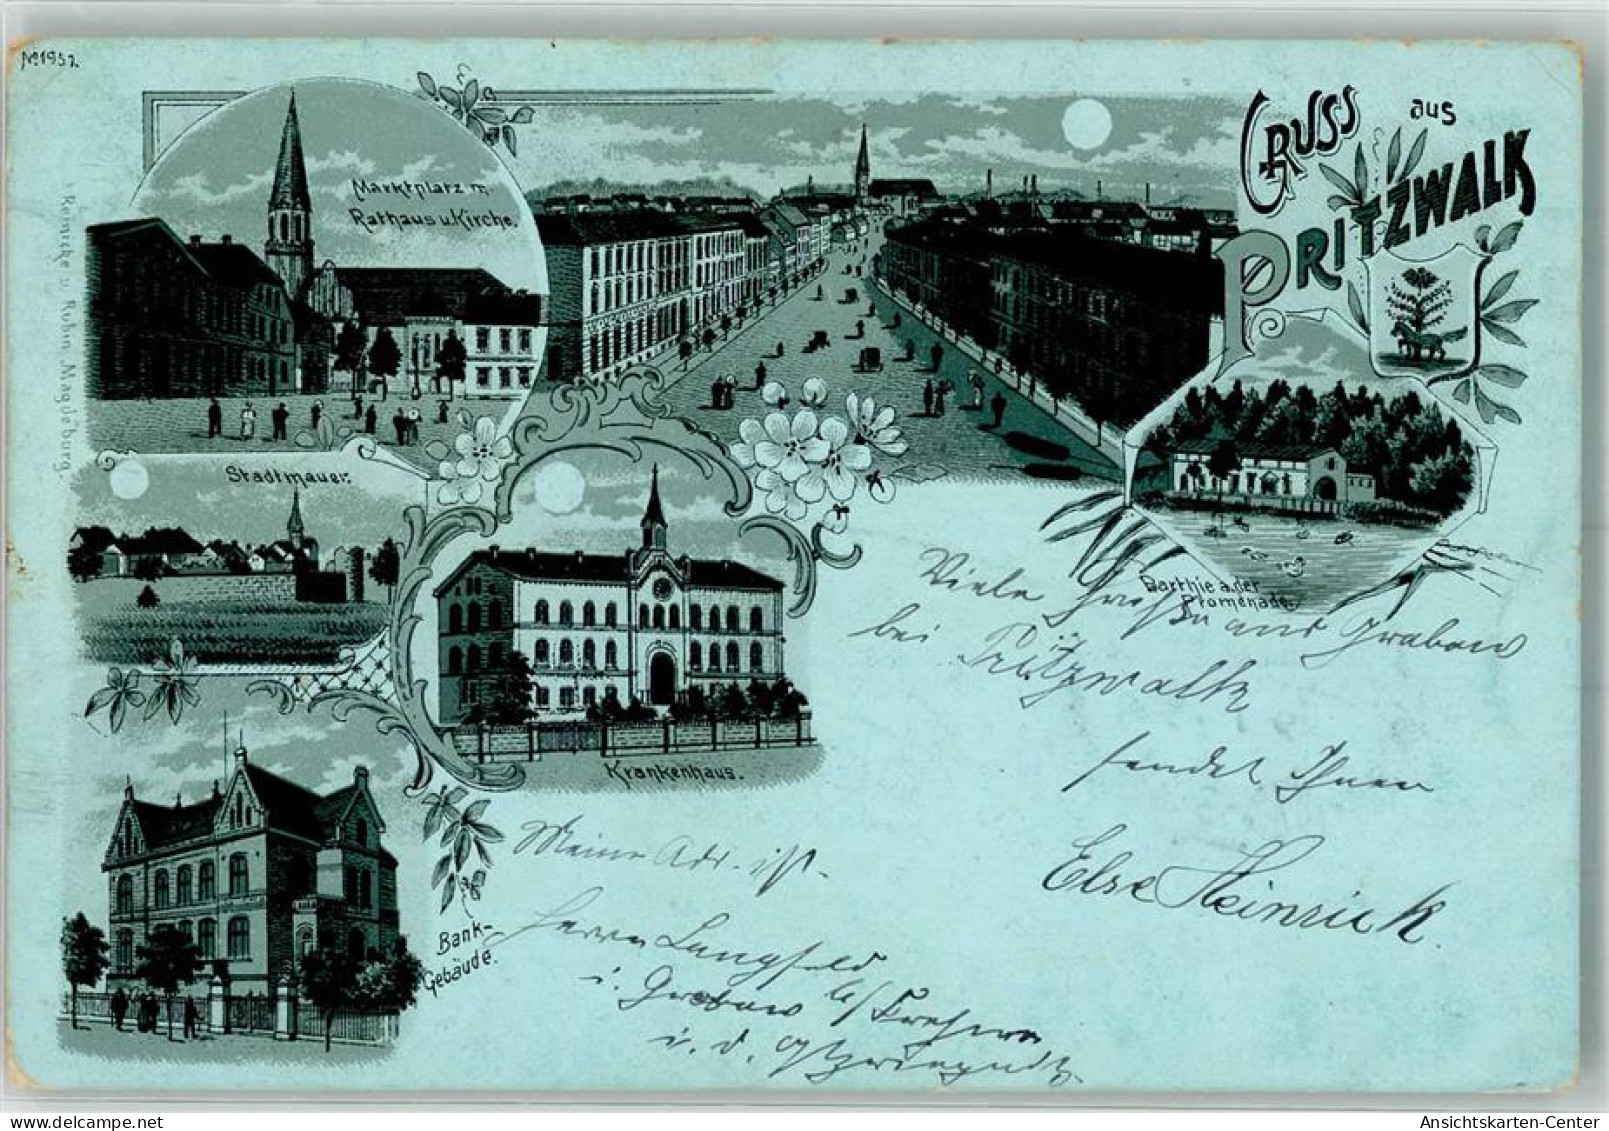 No 1952
Gruss aus
Pritzwalk
Marktplatz m.
Rathaus u. Kirche.
Reinicke u. Rubin, Magdeburg.
Stadtmauer.
Krankenhaus.
Bank-
Gebäude.
Parthie a. der
Promenade.
Viele Grüße aus Grabow
bei Pritzwalk
sendet Ihnen
Else Heinrick.
Meine Adr. ist.
Herrn Langfeld
i. Grabow b/
i. d. Prignitz
Ansichtskarten-Center